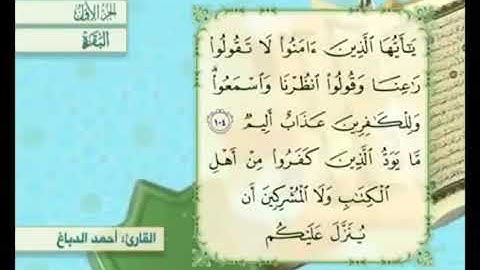 الجزء الأول
البقرة
يَٰٓأَيُّهَا الَّذِينَ ءَامَنُوا۟ لَا تَقُولُوا۟
رَٰعِنَا وَقُولُوا۟ انظُرْنَا وَاسْمَعُوا۟ۗ
وَلِلْكَٰفِرِينَ عَذَابٌ أَلِيمٌ ١٠٤
مَّا يَوَدُّ الَّذِينَ كَفَرُوا۟ مِنْ أَهْلِ
الْكِتَٰبِ وَلَا الْمُشْرِكِينَ أَن
يُنَزَّلَ عَلَيْكُم
القارئ: أحمد الدباغ